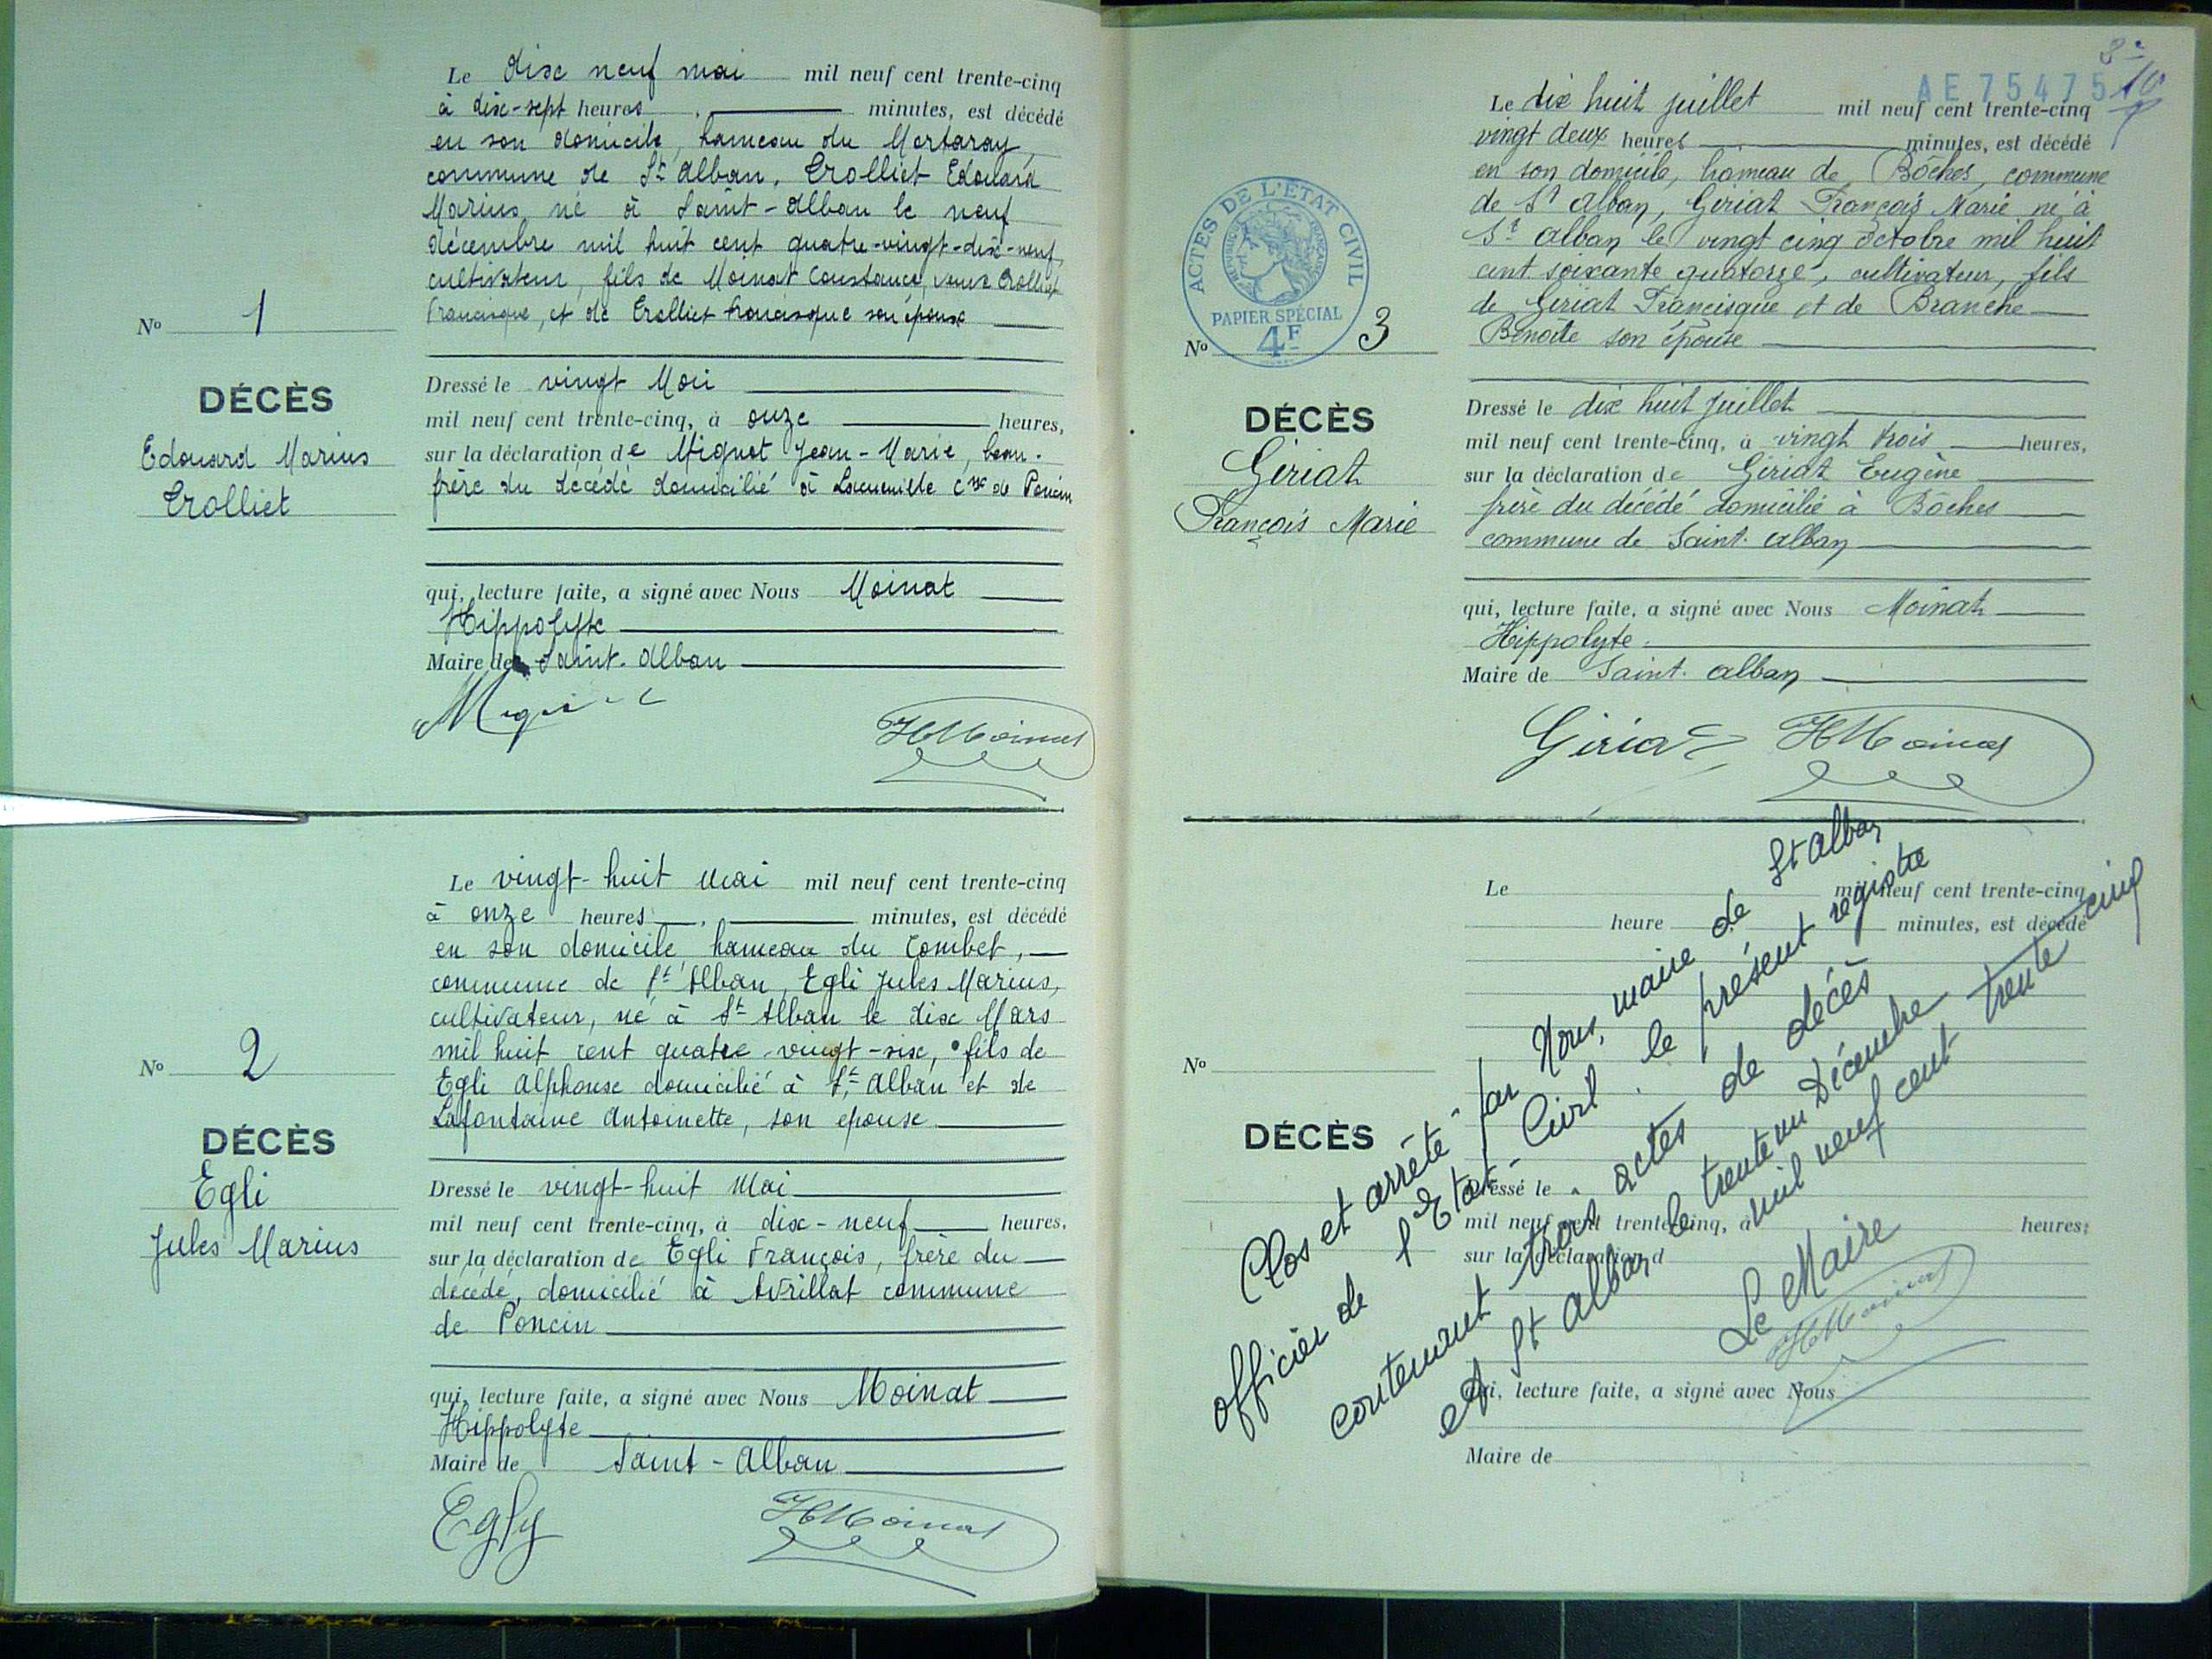 Le dix neuf mai mil neuf cent trente-cinq
à dix-sept heures , minutes, est décédé
en son domicile, hameau du Mortaray,
commune de St Alban, Trolliet Edouard
Marius né à Saint-Alban le neuf
décembre mil huit cent quatre-vingt-dix-neuf,
cultivateur, fils de Moinat Constance, veuve Trolliet
Francisque, et de Trolliet Francisque son époux
No 1
DÉCÈS
Edouard Marius
Trolliet
Dressé le vingt Mai
mil neuf cent trente-cinq, à onze heures,
sur la déclaration de Mignot Jean-Marie, beau-
frère du décédé domicilié à cne de Poncin
qui, lecture faite, a signé avec Nous Moinat
Hippolyte
Maire de Saint-Alban
HMoinat
Le vingt-huit Mai mil neuf cent trente-cinq
à onze heures , minutes, est décédé
en son domicile, hameau du Combet,
commune de St Alban, Egli Jules Marius,
cultivateur, né à St Alban le dix Mars
mil huit cent quatre-vingt-six, fils de
Egli Alphonse domicilié à St Alban et de
Lafontaine Antoinette, son épouse
No 2
DÉCÈS
Egli
Jules Marius
Dressé le vingt-huit Mai
mil neuf cent trente-cinq, à dix-neuf heures,
sur la déclaration de Egli François, frère du
décédé, domicilié à Avrillat commune
de Poncin
qui, lecture faite, a signé avec Nous Moinat
Hippolyte
Maire de Saint-Alban
Egly HMoinat
AE 75475
Le dix huit juillet mil neuf cent trente-cinq
vingt deux heures minutes, est décédé
en son domicile, hameau de Bôches, commune
de St Alban, Giriat François Marie né à
St Alban le vingt cinq octobre mil huit
cent soixante quatorze, cultivateur, fils
de Giriat Francisque et de Branche
Benoîte son épouse
ACTES DE L'ÉTAT CIVIL
RÉPUBLIQUE FRANÇAISE
PAPIER SPÉCIAL
4F
No 3
DÉCÈS
Giriat
François Marie
Dressé le dix huit Juillet
mil neuf cent trente-cinq, à vingt trois heures,
sur la déclaration de Giriat Eugène
frère du décédé domicilié à Bôches
commune de Saint-Alban
qui, lecture faite, a signé avec Nous Moinat
Hippolyte
Maire de Saint-Alban
Giriat HMoinat
Le mil neuf cent trente-cinq
heure minutes, est décédé
No
DÉCÈS
Dressé le
mil neuf cent trente-cinq, à heures,
sur la déclaration d
qui, lecture faite, a signé avec Nous
Maire de
Clos et arrêté par Nous, maire de St Alban
officier de l'Etat-Civil le présent registre
contenant trois actes de décès
A St Alban le trente un Décembre
mil neuf cent trente cinq
Le Maire
HMoinat